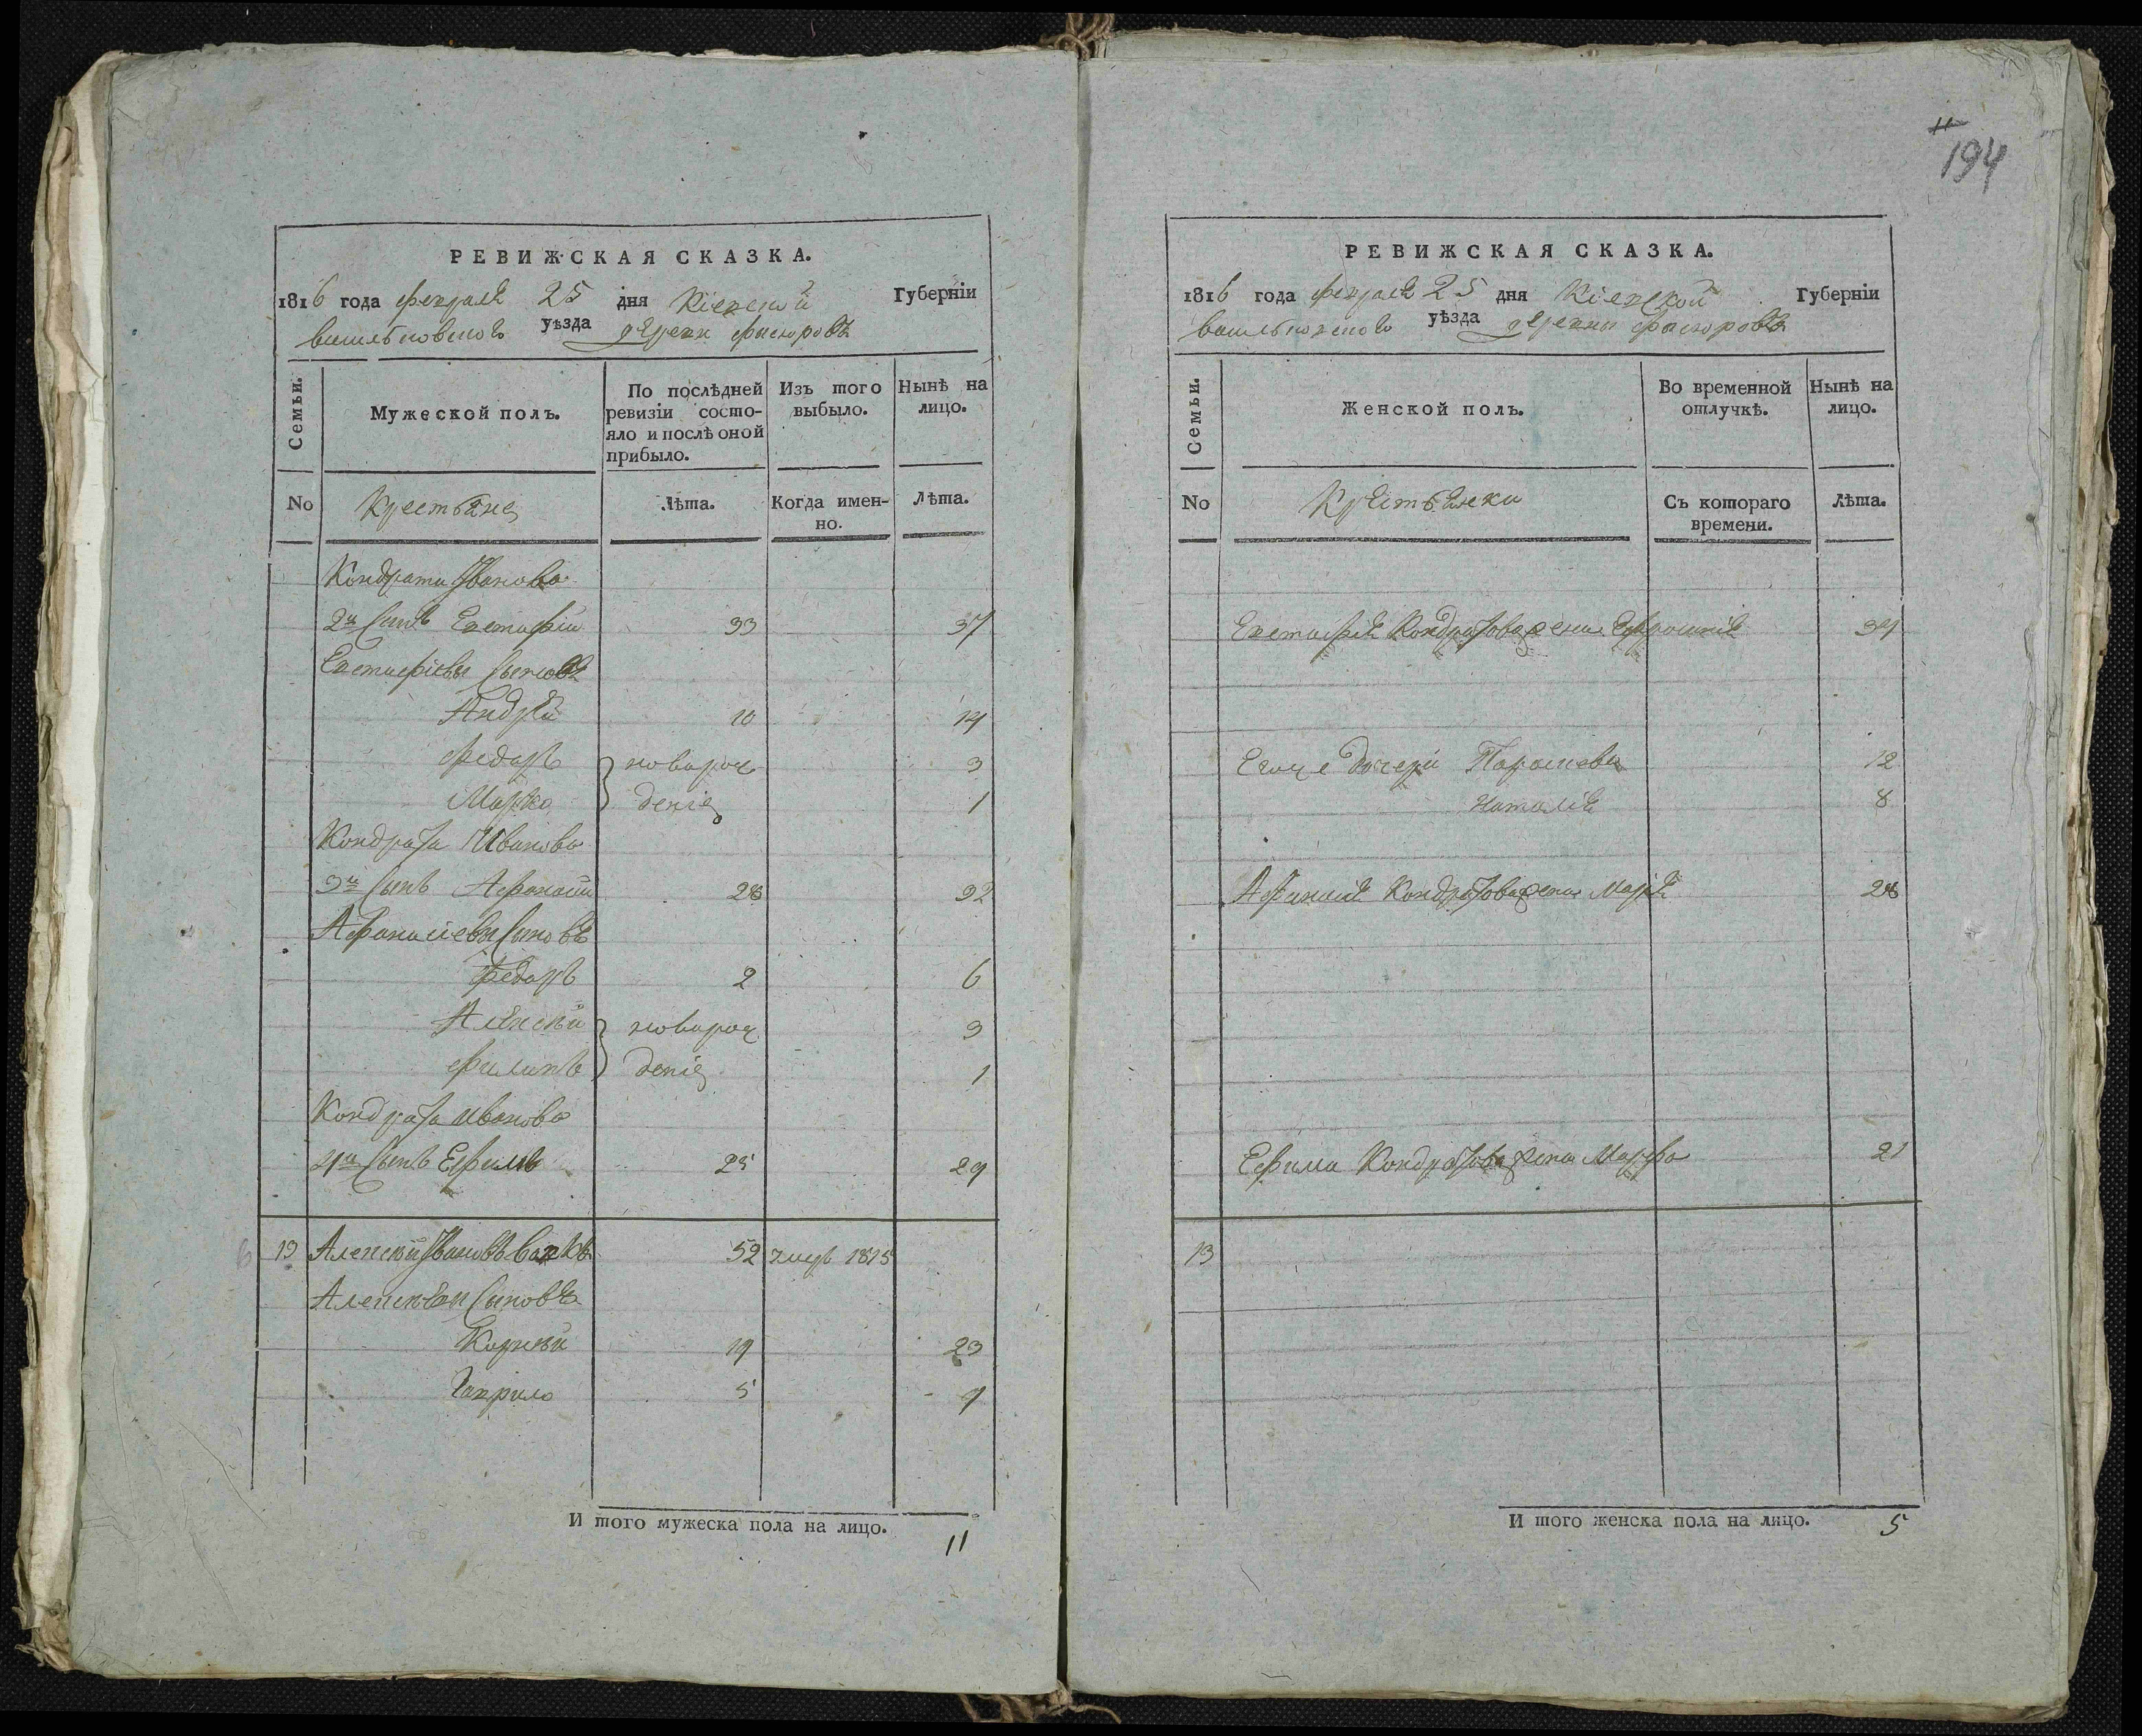 РЕВИЖСКАЯ СКАЗКА.
1816 года февраля 25 дня Кіевской Губерніи
васильковского уѣзда деревни
Семьи.
Мужеской полъ.
По послѣдней ревизіи состояло и послѣ оной прибыло.
Изъ того выбыло.
Нынѣ на лицо.
No
Крестьяне
Лѣта.
Когда именно.
Лѣта.
Кондрата Иванова
2й Сынъ Евстафій 33 37
Евстафіевы Сыновя
Андрей 10 14
Федоръ 3
новорож
Марко 1
денія
Кондрата Иванова
3й Сынъ Афанасій 28 32
Афанасіевы Сыновя
Федоръ 2 6
Алексѣй новорож 3
Филипъ денія 1
Кондрата Иванова
4й Сынъ Ефимъ 25 29
13 Алексѣй Ивановъ 52 умеръ 1815
Алексѣя Сыновя
Корнѣй 19 23
Гаврило 5 9
И того мужеска пола на лицо. 11
11
194
РЕВИЖСКАЯ СКАЗКА.
1816 года февраля 25 дня Кіевской Губерніи
васильковского уѣзда деревни
Семьи.
Женской полъ.
Во временной отлучкѣ.
Нынѣ на лицо.
No
Крестьянки
Съ котораго времени.
Лѣта.
Евстафія Кондратова жена 34
Его же дочери Параскева 12
Наталія 8
Афанасія Кондратова жена Марія 28
Ефима Кондратова жена Марфа 21
13
И того женска пола на лицо. 5